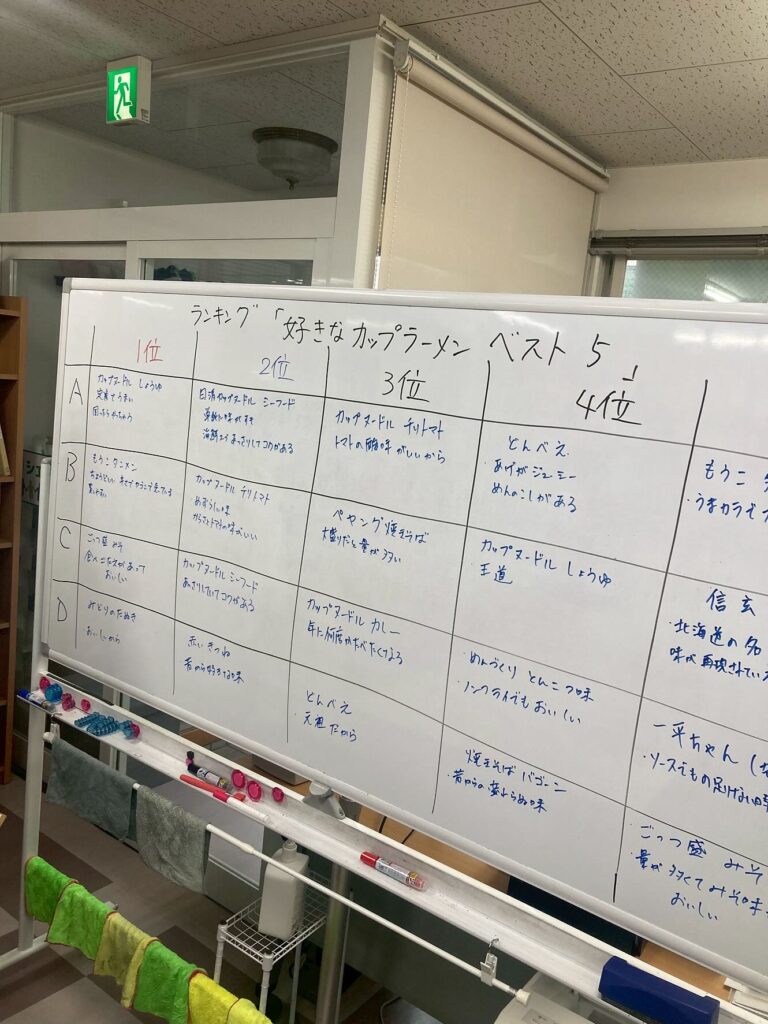 ランキング「好きなカップラーメン ベスト5」
1位
2位
3位
4位
A
カップヌードル しょうゆ
定番でうまい
日清カップヌードル シーフード
海鮮エキ あっさりしてコクがある
カップヌードル チリトマト
トマトの酸味がいいから
どんべえ
あげがジューシー
めんのこしがある
もうこ
・うまカラで
B
もうこタンメン
カップヌードル チリトマト
めずらしい味
からさとトマトの味がいい
ペヤング焼きそば
大盛りだと量が多い
カップヌードル しょうゆ
王道
信玄
・北海道の名
味が再現されてい
C
ごっつ盛 みそ
食べごたえがあって
おいしい
カップヌードル シーフード
あっさりしていてコクがある
カップヌードル カレー
年に何度かたべたくなる
めんづくり とんこつ味
・ノンフライでもおいしい
一平ちゃん
・ソースでもの足りない
D
みどりのたぬき
おいしいから
赤いきつね
昔から好きな味
どんべえ
・元祖だから
焼きそば バゴーン
・昔からの変わらぬ味
ごっつ盛 みそ
・量が多くてみそ味
おいしい